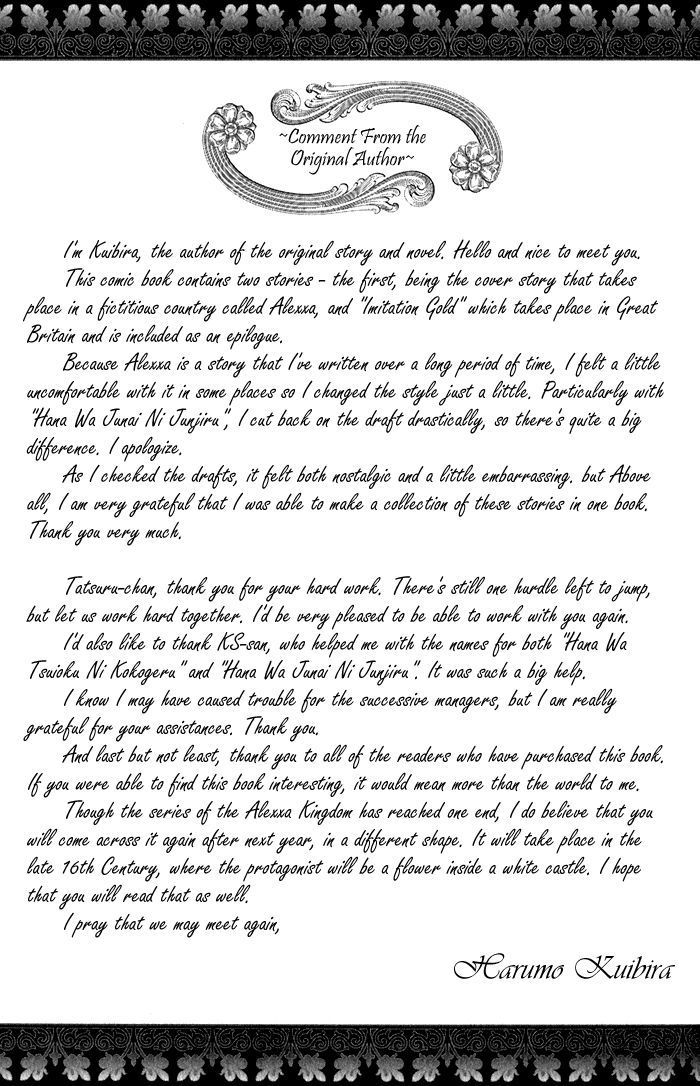 ~Comment From the
Original Author~
I'm Kuibira, the author of the original story and novel. Hello and nice to meet you.
This comic book contains two stories - the first, being the cover story that takes
place in a fictitious country called Alexxa, and "Imitation Gold" which takes place in Great
Britain and is included as an epilogue.
Because Alexxa is a story that I've written over a long period of time, I felt a little
uncomfortable with it in some places so I changed the style just a little. Particularly with
"Hana Wa Junai Ni Junjiru", I cut back on the draft drastically, so there's quite a big
difference. I apologize.
As I checked the drafts, it felt both nostalgic and a little embarrassing. but Above
all, I am very grateful that I was able to make a collection of these stories in one book.
Thank you very much.
Tatsuru-chan, thank you for your hard work. There's still one hurdle left to jump,
but let us work hard together. I'd be very pleased to be able to work with you again.
I'd also like to thank KS-san, who helped me with the names for both "Hana Wa
Tsuioku Ni Kokogeru" and "Hana Wa Junai Ni Junjiru". It was such a big help.
I know I may have caused trouble for the successive managers, but I am really
grateful for your assistances. Thank you.
And last but not least, thank you to all of the readers who have purchased this book.
If you were able to find this book interesting, it would mean more than the world to me.
Though the series of the Alexxa Kingdom has reached one end, I do believe that you
will come across it again after next year, in a different shape. It will take place in the
late 16th Century, where the protagonist will be a flower inside a white castle. I hope
that you will read that as well.
I pray that we may meet again,
Harumo Kuibira